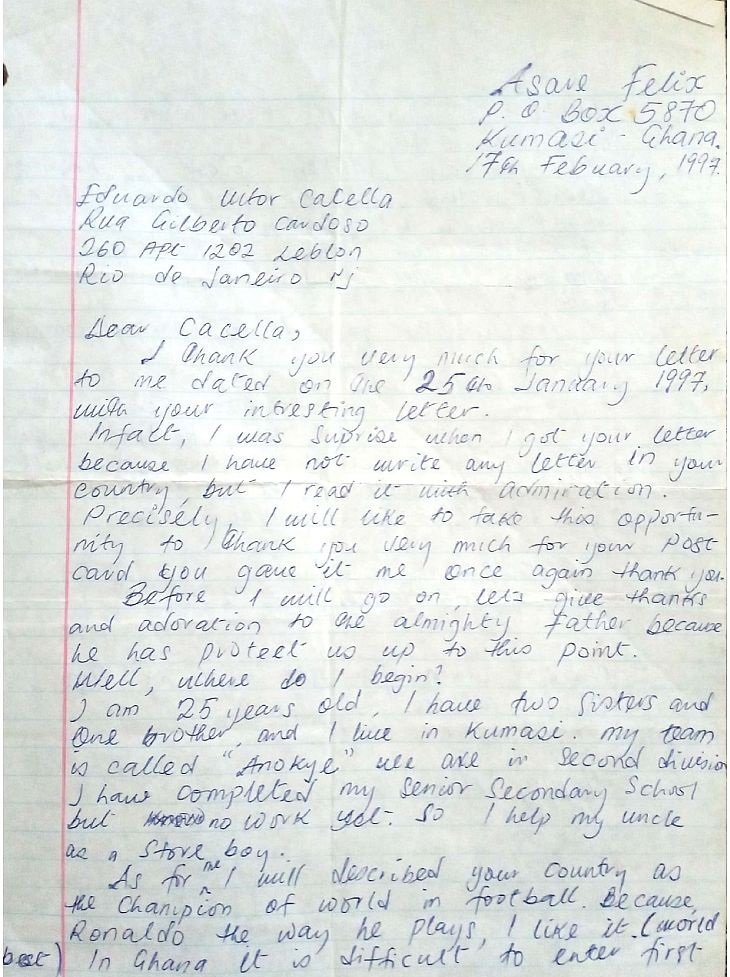 Asare Felix
P. O. Box 5870
Kumasi - Ghana.
17th Febuary, 1997.
Eduardo Vitor Cacella
Rua Gilberto Cardoso
260 Apt 1202 Leblon
Rio de Janeiro rj
Dear Cacella,
I thank you very much for your letter
to me dated on the 25th January 1997,
with your intresting letter.
Infact, I was suprise when I got your letter
because I have not write any letter in your
country, but I read it with admiration.
Precisely, I will like to take this opportu-
nity to thank you very much for your Post
card you gave it me once again thank you.
Before I will go on, lets give thanks
and adoration to the almighty Father because
he has protect us up to this point.
Well, where do I begin?
I am 25 years old, I have two sisters and
one brother, and I live in Kumasi. my team
is called "Anokye" we are in second division
I have completed my Senior Secondary School
but no work yet. So I help my uncle
as a store boy.
As for me I will described your country as
the Champion of world in football. Because,
Ronaldo the way he plays, I like it. (world
best) In Ghana it is difficult to enter first